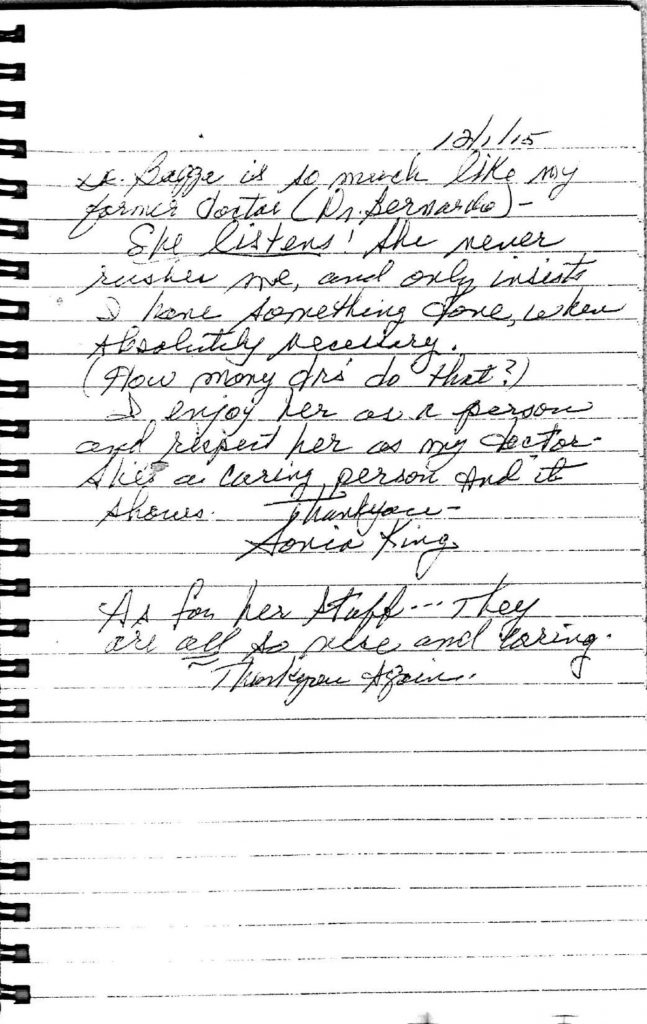 12/1/15
Dr. Bagga is so much like my
former doctor (Dr. Bernardo) -
She listens! She never
rushes me, and only insists
I have something done, when
absolutely necessary.
(How many drs' do that?)
I enjoy her as a person
and respect her as my doctor -
She's a caring person and it
shows. Thankyou -
Sonia King
As for her staff... They
are all so nice and caring.
Thankyou Again..